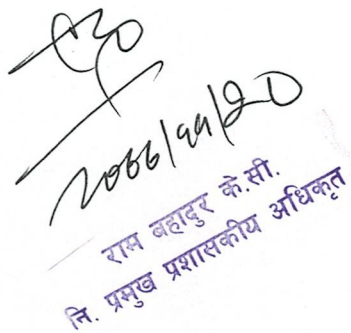 २०७७/११/२०
राम बहादुर के.सी.
नि. प्रमुख प्रशासकीय अधिकृत